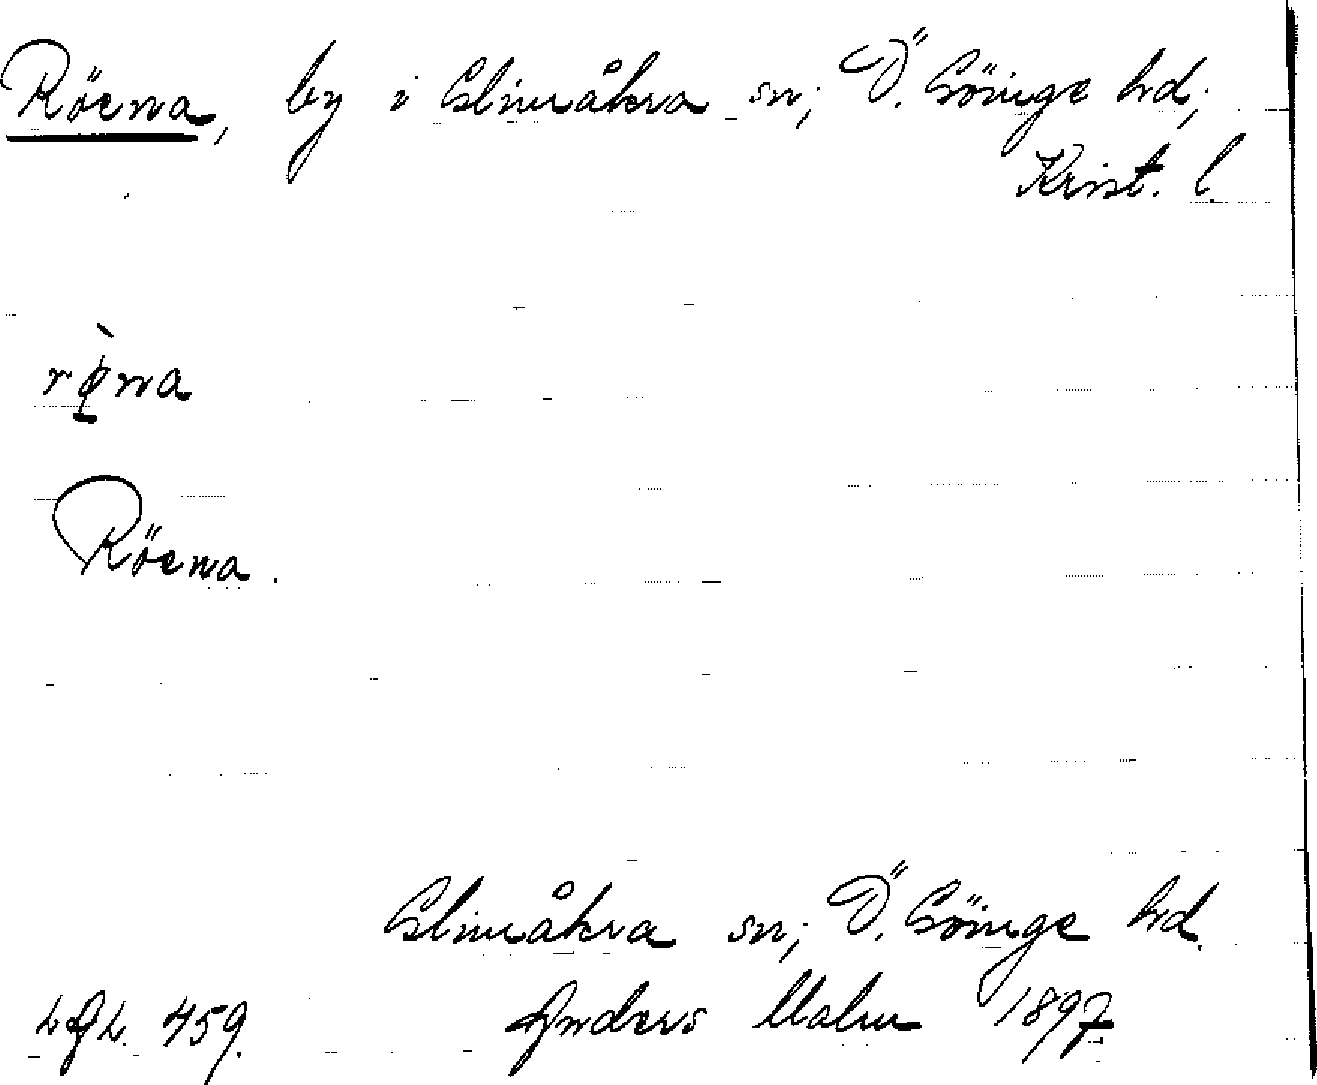 Röena, by i Glimåkra sn; Ö. Göinge hd;
Krist. l.
rø̀na
Röena.
Glimåkra sn; Ö. Göinge hd.
459. Anders Malm 1897